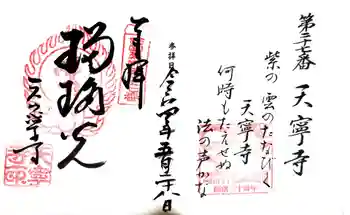 第二十七番 天寧寺
紫の 雲のたなびく
天寧寺
何時もたえせぬ
法の声かな
参拝日
令和四年五月二十八日
奉拝
瑠璃光
天寧寺